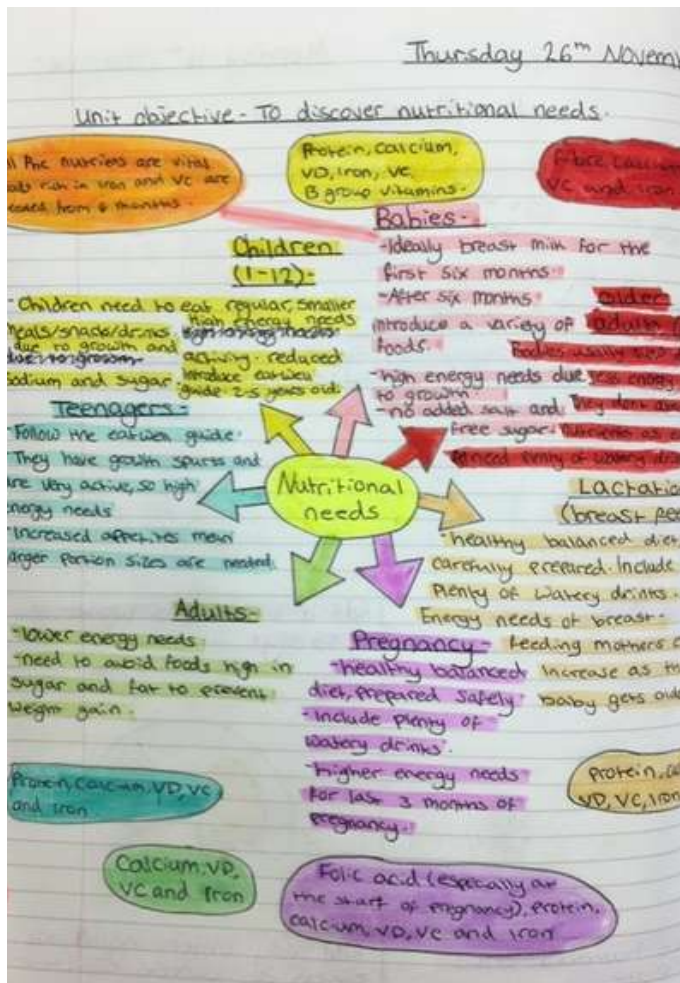 Thursday 26th Novem
Unit objective - To discover nutritional needs.
the nutriens are vital
rich in iron and VC are
from 6 months.
Protein, calcium,
VD, iron, VC,
B group vitamins.
Fibre, calcium
VC and iron
Babies-
-Ideally breast milk for the
first six months.
-After six months
introduce a variety of
foods.
-high energy needs due
to growth
-no added salt and
free sugar.
Children
(1-12)-
-Children need to eat regular, smaller
meals/snacks/drinks. high energy needs
due to growth and
activity. reduced
sodium and sugar. introduce eatwell
guide 2-5 years old.
older
adults
Bodies usually
less energy
They dont
nutrients as
need plenty of watery
Teenagers-
Follow the eatwell guide.
They have growth spurts and
are very active, so high
energy needs
Increased appetites mean
larger portion sizes are needed.
Nutritional
needs
Lactatio
(breast fee
-healthy balanced diet,
carefully prepared. Include
Plenty of watery drinks.
Energy needs of breast-
feeding mothers
increase as th
baby gets
Adults-
-lower energy needs
-need to avoid foods high in
sugar and fat to prevent
weight gain.
Pregnancy-
-healthy balanced
diet, prepared safely
-Include plenty of
watery drinks.
-higher energy needs
for last 3 months of
pregnancy.
Protein, calcium, VD, VC
and iron
Protein, ca
VD, VC, iron
Calcium, VD,
VC and iron
Folic acid (especially at
the start of pregnancy), protein,
calcium, VD, VC and iron